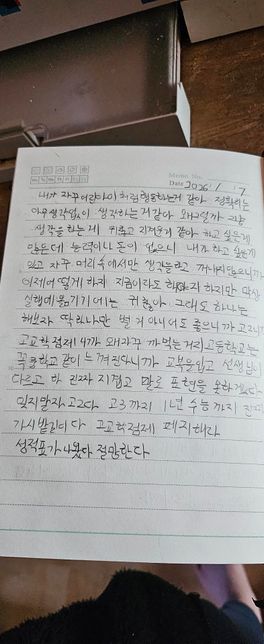 Memo. No.
Date 2026 / 1 / 7
내가 자꾸 어린아이처럼 행동하는거 같아 정확히는
아무생각없이 생각하는거같아 왜그럴까 그냥
생각을 하는게 귀찮고 지겨운거 같아 하고 싶은게
많은데 능력이나 돈이 없으니 내가 하고 싶은걸
자꾸 머릿속에서만 생각을하고 꺼내지않으니까
어쩌지 지금이라도 하지만 막상
실행에 옮기기에는 귀찮아 그래도 하나는
해보자 딱 하나만 별거 아니더도 좋으니까 고2니까
고교학점제니까 왜 자꾸 까먹는거지 고등학교는
꼭 중학교같이 느껴진다니까 교복을입고 선생님이
다르고 하 진짜 지겹고 말로 표현을 못하겠다
잊지말자 고2다 고3까지 1년 수능까지 진짜
가시밭길이다 고교학점제 폐지해라
성적표가 나왔다 절망한다